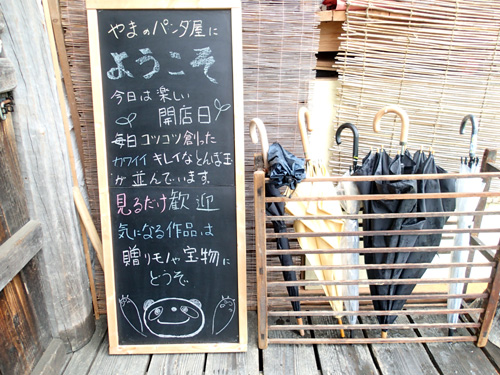 やまのパンタ屋に
ようこそ
今日は楽しい
開店日
毎日コツコツ創った
カワイイキレイなとんぼ玉
が並んでいます。
見るだけ歓迎
気になる作品は
贈リモノや宝物に
どうぞ